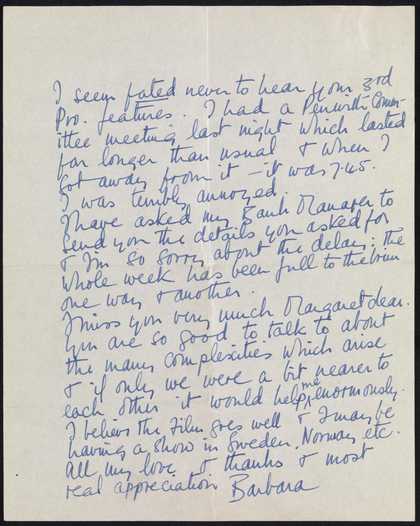 I seem fated never to hear your 3rd
Pro. features. I had a Penwith Comm-
ittee meeting last night which lasted
far longer than usual & when I
got away from it – it was 7.45.
I was terribly annoyed.
I have asked my Bank Manager to
send you the details you asked for
& I'm so sorry about the delay: the
whole week has been full to the brim
one way & another.
I miss you very much Margaret dear.
You are so good to talk to about
the many complexities which arise
& if only we were a bit nearer to
each other it would help me enormously.
I believe the Film goes well & I may be
having a show in Sweden, Norway etc.
All my love & thanks & most
real appreciation Barbara